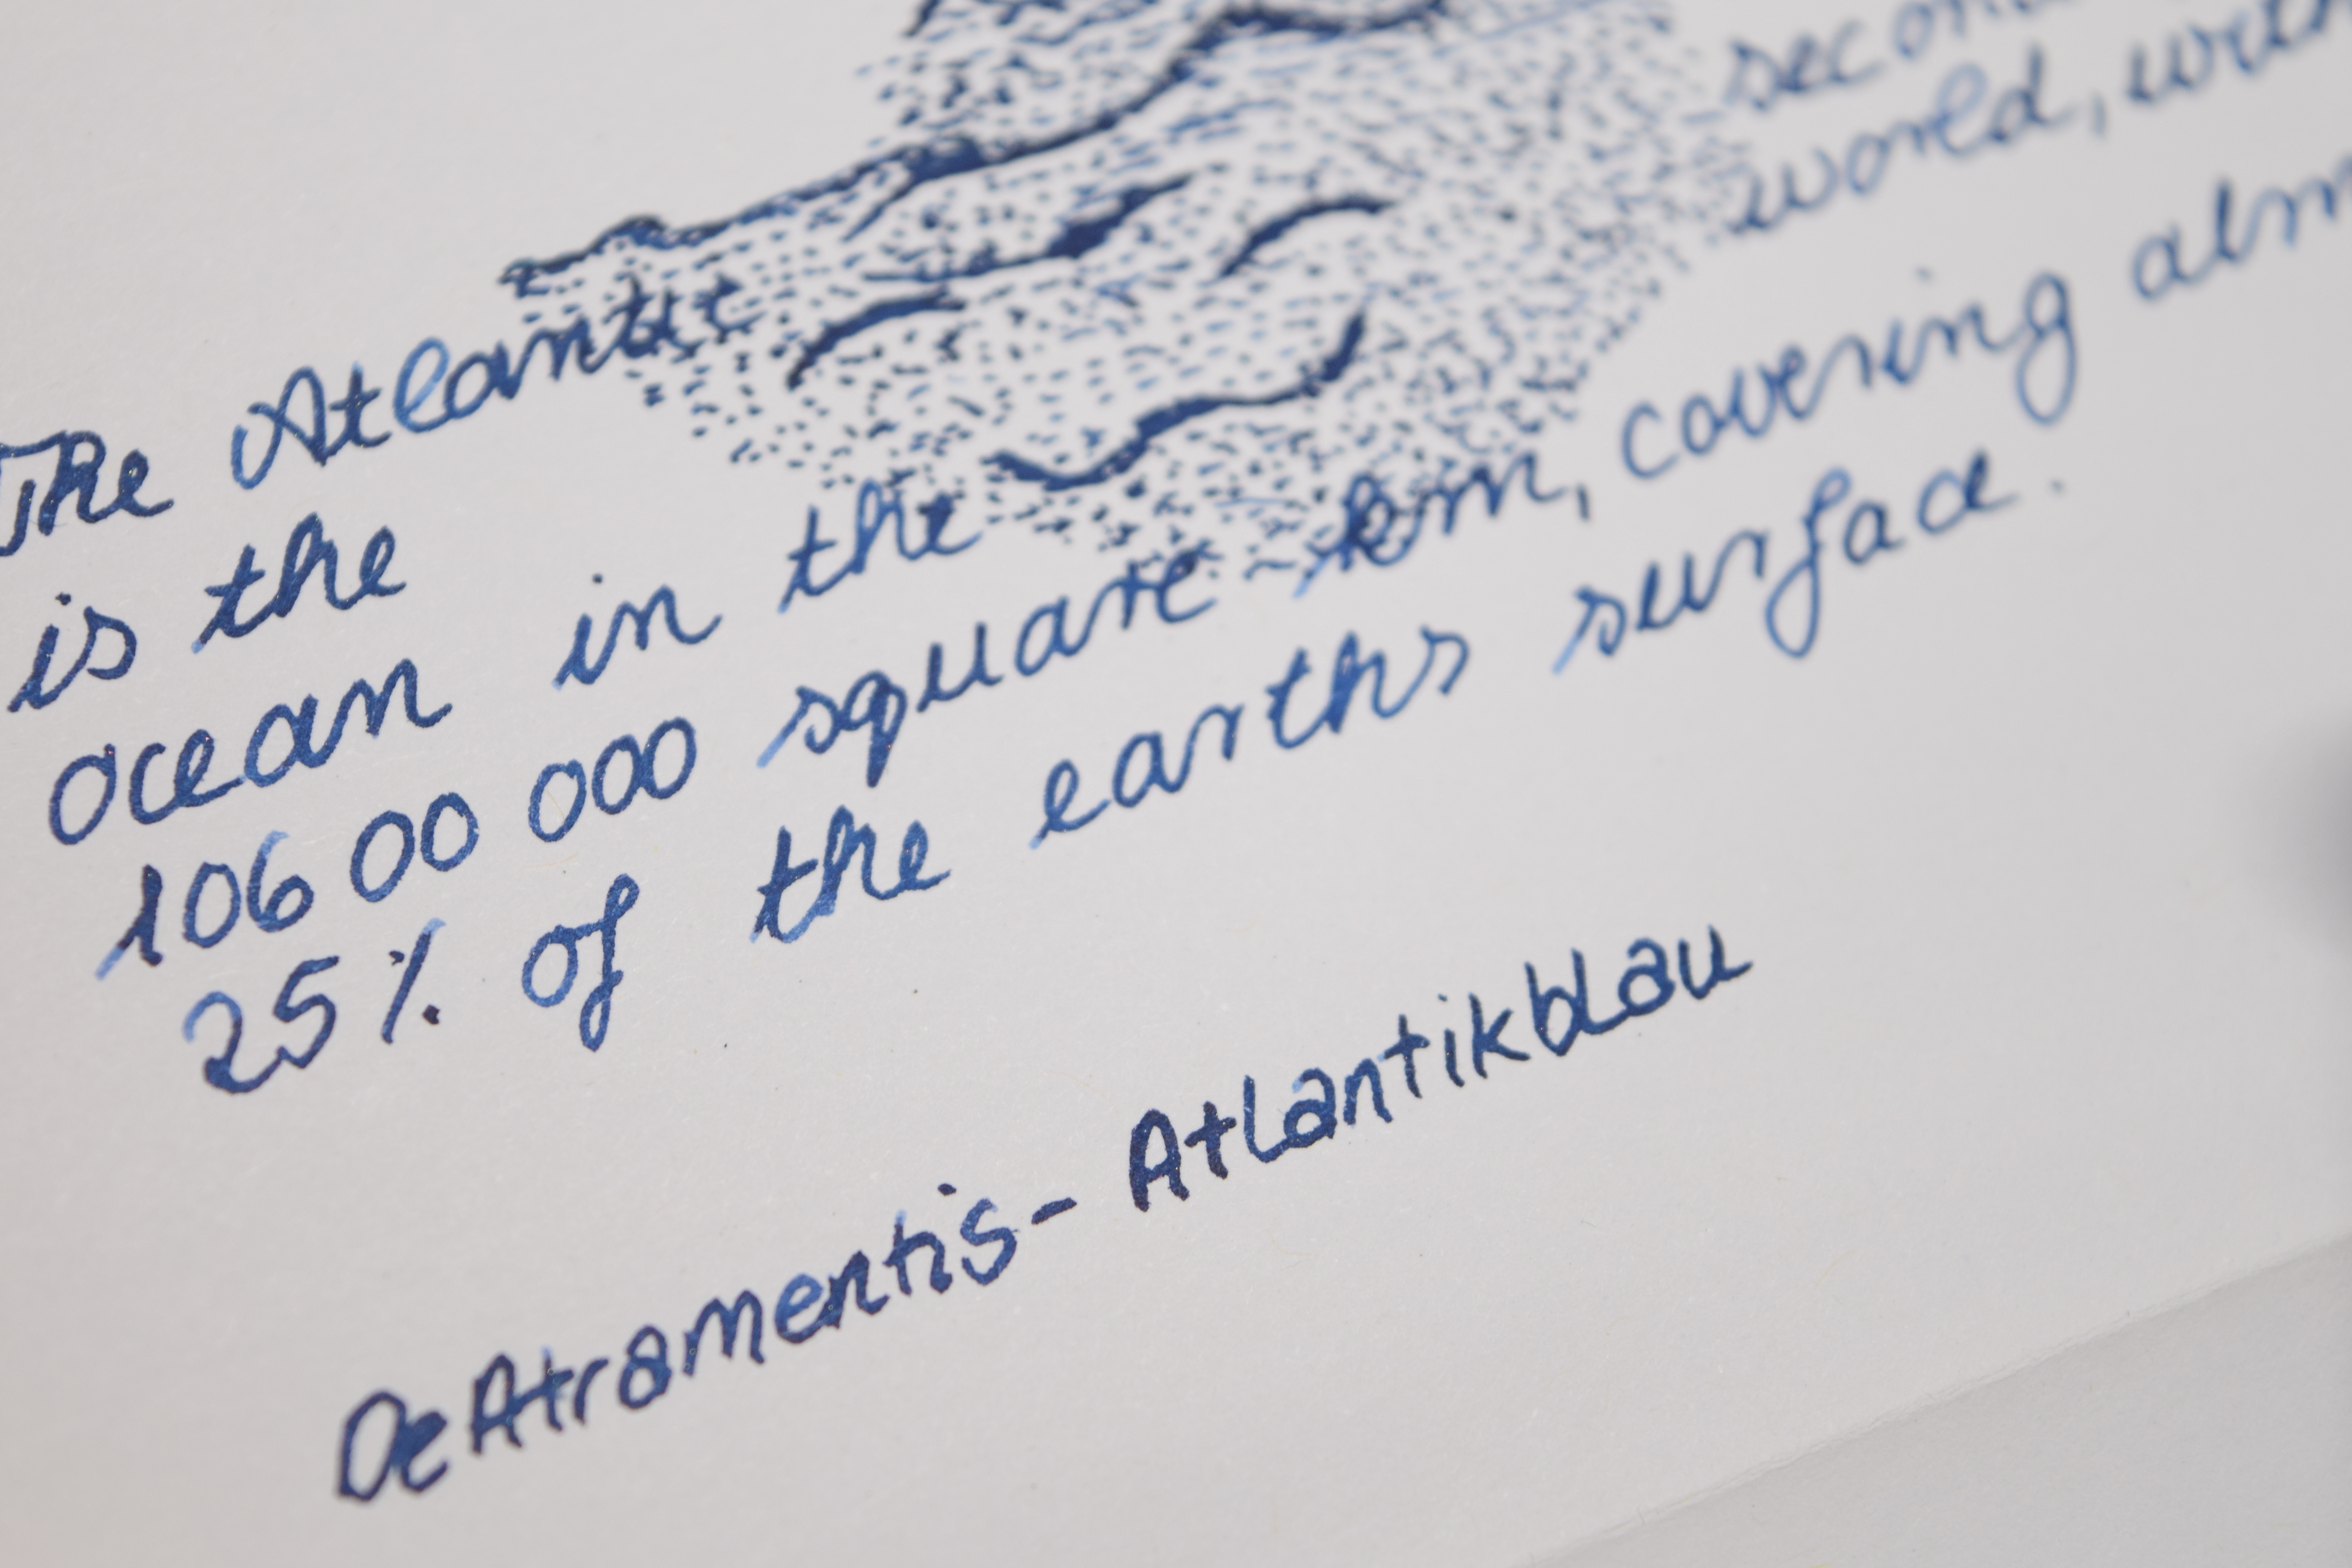 The Atlantic
is the secon
ocean in the world, with
106 00 000 square-km, covering alm
25% of the earths surface.
DeAtramentis - Atlantikblau